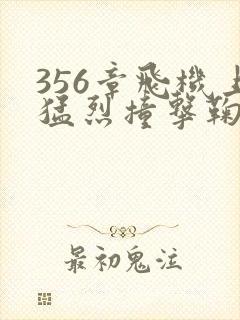 356章飛機上
猛烈撞擊鞠
最初鬼注